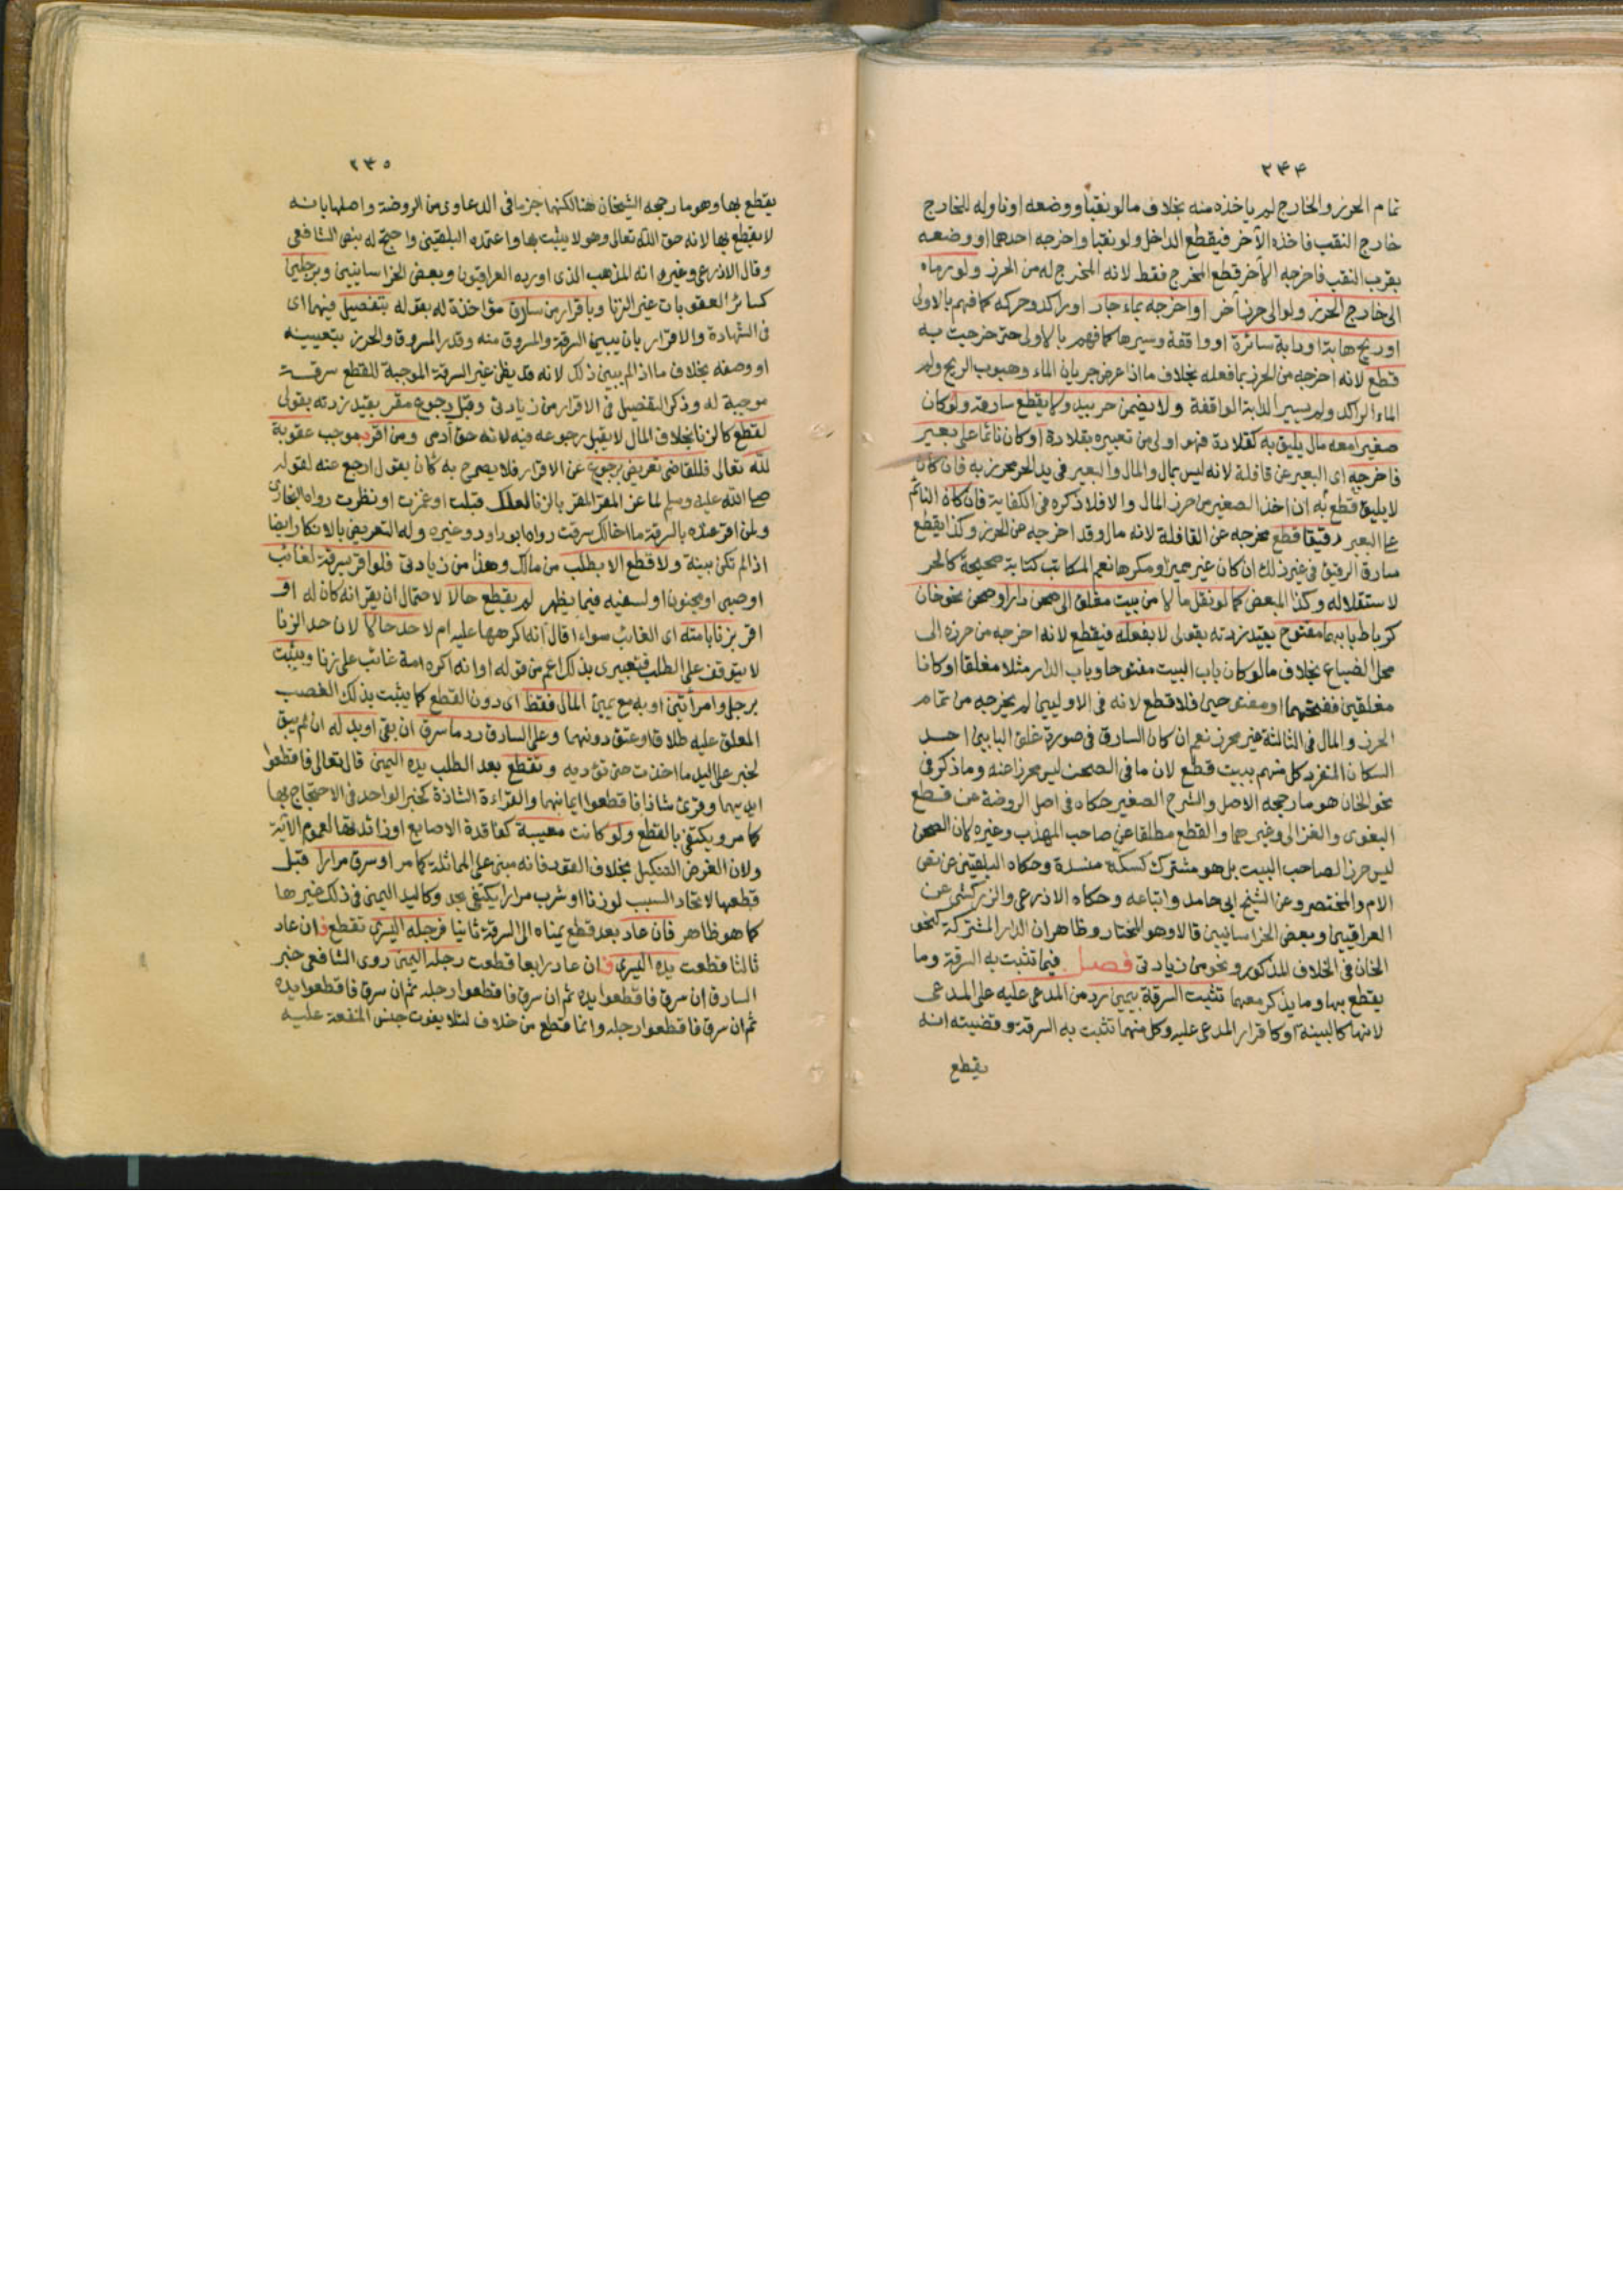 ٢٣٤
تمام الحرز والخارج لم ياخذه منه بخلاف ما لو نقبا ووضعه او ناوله للخارج
خارج النقب فاخذه الآخر فيقطع الداخل ولو نقبا واخرجه احدهما او وضعه
بقرب النقب فاخرجه الآخر قطع المخرج فقط لانه المخرج له من الحرز ولو رماه
الى خارج الحرز ولو الى حرز آخر او اخرجه بماء جار او راكد وحركه كما فهم بالاولى
او ريح هابة او دابة سائرة او واقفة وسيرها كما فهم بالاولى حتى خرجت به
قطع لانه اخرجه من الحرز بما فعله بخلاف ما اذا عرض جريان الماء وهبوب الريح ولم
الماء الراكد ولم يسير الدابة الواقفة ولا يضمن حر بيد ولا يقطع سارقه ولو كان
صغيرا معه مال يليق به كقلادة فهو اولى من تعبيره بقلادة او كان نائما على بعير
فاخرجه اى البعير عن قافلة لانه ليس بمال والمال والبعير في يد الحر محرز به فان كان
لا يليق قطع به ان اخذ الصغير من حرز المال والا فلا ذكره في الكفاية فان كان النائم
على البعير رقيقا قطع مخرجه عن القافلة لانه مال وقد اخرجه من الحرز وكذا يقطع
سارق الرقيق في غير ذلك ان كان غير مميز او مكرها نعم المكاتب كتابة صحيحة كالحر
لاستقلاله وكذا المبعض كما لو نقل مالا من بيت مغلق الى صحن دار او صحن نحو خان
كرباط بابهما مفتوح بقيد زدته بقولى لا بفعله فيقطع لانه اخرجه من حرزه الى
محل الضياع بخلاف ما لو كان باب البيت مفتوحا وباب الدار مثلا مغلقا او كانا
مغلقين ففتحهما او مفتوحين فلا قطع لانه في الاوليين لم يخرجه من تمام
الحرز والمال في الثالثة غير محرز نعم ان كان السارق في صورة غلق البابين احد
السكان المنفرد كل منهم ببيت قطع لان ما في الصحن ليس محرزا عنه وما ذكر في
نحو الخان هو ما رجحه الاصل والشرح الصغير حكاه في اصل الروضة عن قطع
البغوى والغزالى وغيرهما والقطع مطلقا عن صاحب المهذب وغيره لان الصحن
ليس حرزا لصاحب البيت بل هو مشترك كسكة منسدة وحكاه البلقينى عن نص
الام والمختصر وعن الشيخ ابى حامد واتباعه وحكاه الاذرعى والزركشى عن
العراقيين وبعض الخراسانيين قالا وهو المختار وظاهر ان الدار المشتركة كنحو
الخان في الخلاف المذكور ونحو من زيادتى فصل فيما تثبت به السرقة وما
يقطع بها وما يذكر معهما تثبت السرقة بيمين رد من المدعى عليه على المدعى
لانها كالبينة او كاقرار المدعى عليه وكل منهما تثبت به السرقة وقضيته انه
يقطع
٢٣٥
يقطع بها وهو ما رجحه الشيخان هنا لكنهما جزما في الدعاوى من الروضة واصلها بانه
لا يقطع بها لانه حق الله تعالى وهو لا يثبت بها واعتمده البلقينى واحتج له بنص الشافعى
وقال الاذرعى وغيره انه المذهب الذى اورده العراقيون وبعض الخراسانيين وبرجلين
كسائر العقوبات غير الزنا وباقرار من سارق مؤاخذة له بقوله بتفصيل فيهما اى
في الشهادة والاقرار بان يبين السرقة والمسروق منه وقدر المسروق والحرز بتعيينه
او وصفه بخلاف ما اذا لم يبين ذلك لانه قد يظن غير السرقة الموجبة للقطع سرقة
موجبة له وذكر التفصيل في الاقرار من زيادتى وقبل رجوع مقر بقيد زدته بقولى
لقطع كالزنا بخلاف المال لا يقبل رجوعه فيه لانه حق آدمى ومن اقر بموجب عقوبة
لله تعالى فللقاضى تعريض برجوع عن الاقرار فلا يصرح به كأن يقول ارجع عنه لقوله
صلى الله عليه وسلم لماعز المقر بالزنا لعلك قبلت او غمزت او نظرت رواه البخارى
ولمن اقر عنده بالسرقة ما اخالك سرقت رواه ابو داود وغيره وله التعريض بالانكار ايضا
اذا لم تكن بينة ولا قطع الا بطلب من مالك وهذا من زيادتى فلو اقر بسرقة لغائب
او صبى او مجنون او لسفيه فيما يظهر لم يقطع حالا لاحتمال ان يقر انه كان له او
اقر بزنا بامته اى الغائب سواء اقال انه اكرهها عليه ام لا حد حالا لان حد الزنا
لا يتوقف على الطلب فتعبيرى بذلك اعم من قوله او انه اكره امة غائب على زنا ويثبت
برجل وامرأتين او به مع يمين المال فقط اى دون القطع كما يثبت بذلك الغصب
المعلق عليه طلاق او عتق دونهما وعلى السارق رد ما سرق ان بقى او بدله ان لم يبق
لخبر على اليد ما اخذت حتى تؤديه وتقطع بعد الطلب يده اليمنى قال تعالى فاقطعوا
ايديهما وقرئ شاذا فاقطعوا ايمانهما والقراءة الشاذة كخبر الواحد في الاحتجاج بها
كما مر ويكتفى بالقطع ولو كانت معيبة كفاقدة الاصابع او زائدتها لعموم الآية
ولان الغرض التنكيل بخلاف القود فانه مبنى على المماثلة كما مر او سرق مرارا قبل
قطعها لاتحاد السبب لو زنا او شرب مرارا يكتفى بحد وكاليد اليمنى في ذلك غيرها
كما هو ظاهر فان عاد بعد قطع يمناه الى السرقة ثانيا فرجله اليسرى تقطع فان عاد
ثالثا قطعت يده اليسرى فان عاد رابعا قطعت رجله اليمنى روى الشافعى خبر
السارق ان سرق فاقطعوا يده ثم ان سرق فاقطعوا رجله ثم ان سرق فاقطعوا يده
ثم ان سرق فاقطعوا رجله وانما قطع من خلاف لئلا يفوت جنس المنفعة عليه